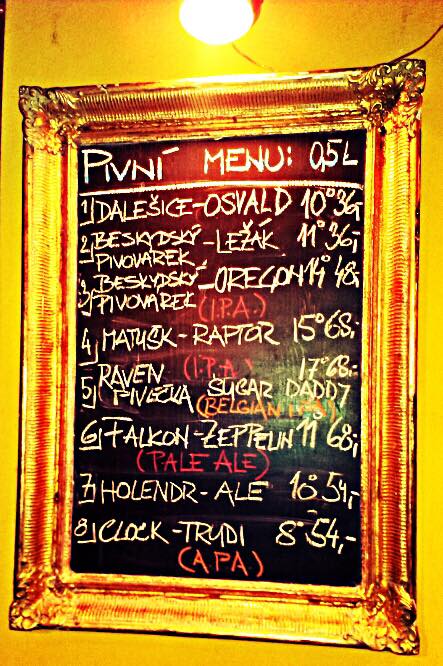 PIVNÍ MENU: 0,5L
1) DALEŠICE-OSVALD 10° 36,-
2) BESKYDSKÝ PIVOVÁREK -LEŽÁK 11° 36,-
3) BESKYDSKÝ PIVOVÁREK -OREGON 14° 48,-
(I.P.A.)
4) MATUŠK-RAPTOR 15° 68,-
(I.P.A.)
5) RAVEN 17° 68,-
PIVEČKA SUGAR DADDY
(BELGIAN
6) FALKON-ZEPPELIN 11 68,-
(PALE ALE)
7) HOLENDR-ALE 10° 54,-
8) CLOCK-TRUDI 8° 54,-
(A.P.A.)